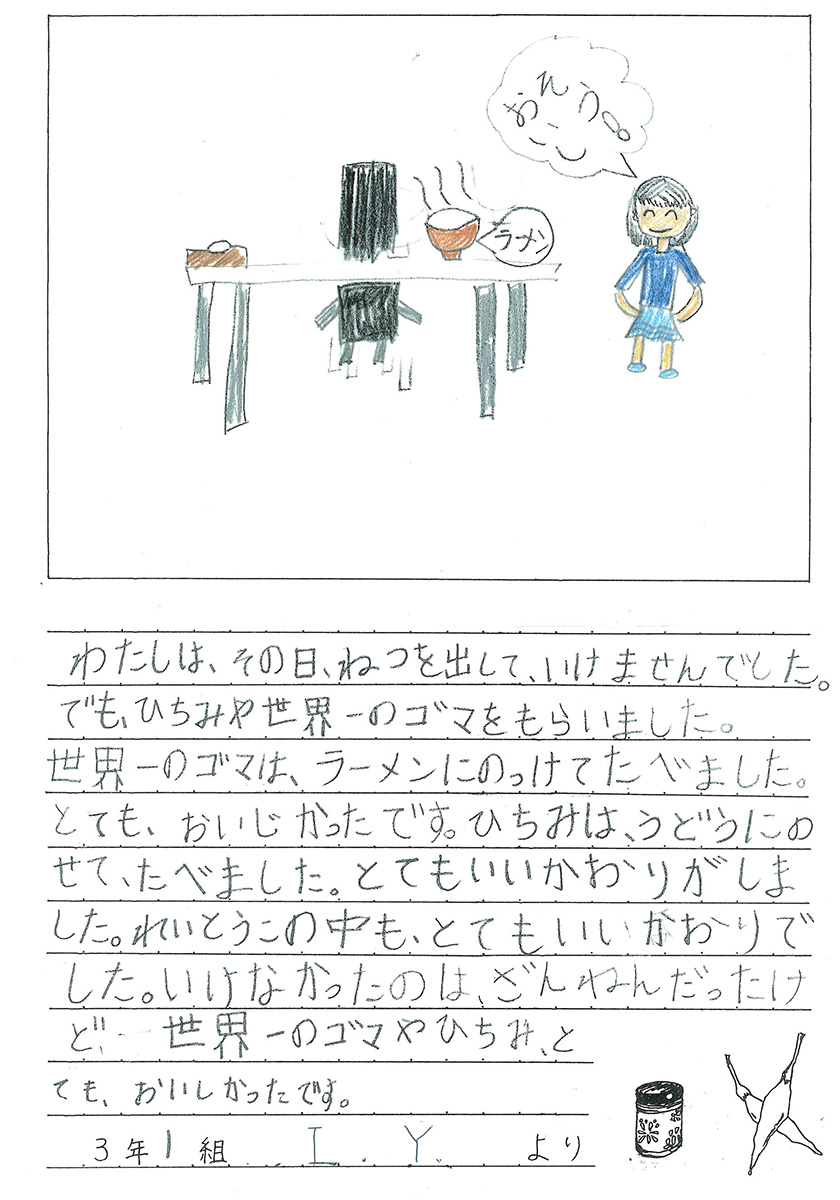 おれう!!
こし
ラーメン
わたしは、その日、ねつを出して、いけませんでした。
でも、ひちみや世界一のゴマをもらいました。
世界一のゴマは、ラーメンにのっけてたべました。
とても、おいじかったです。ひちみは、うどうにの
せて、たべました。とてもいいかおりがしま
した。れいとうこの中も、とてもいいかおりで
した。いけなかったのは、ざんねんだったけ
ど、世界一のゴマやひちみ、と
ても、おいしかったです。
3年1組 I.Y. より